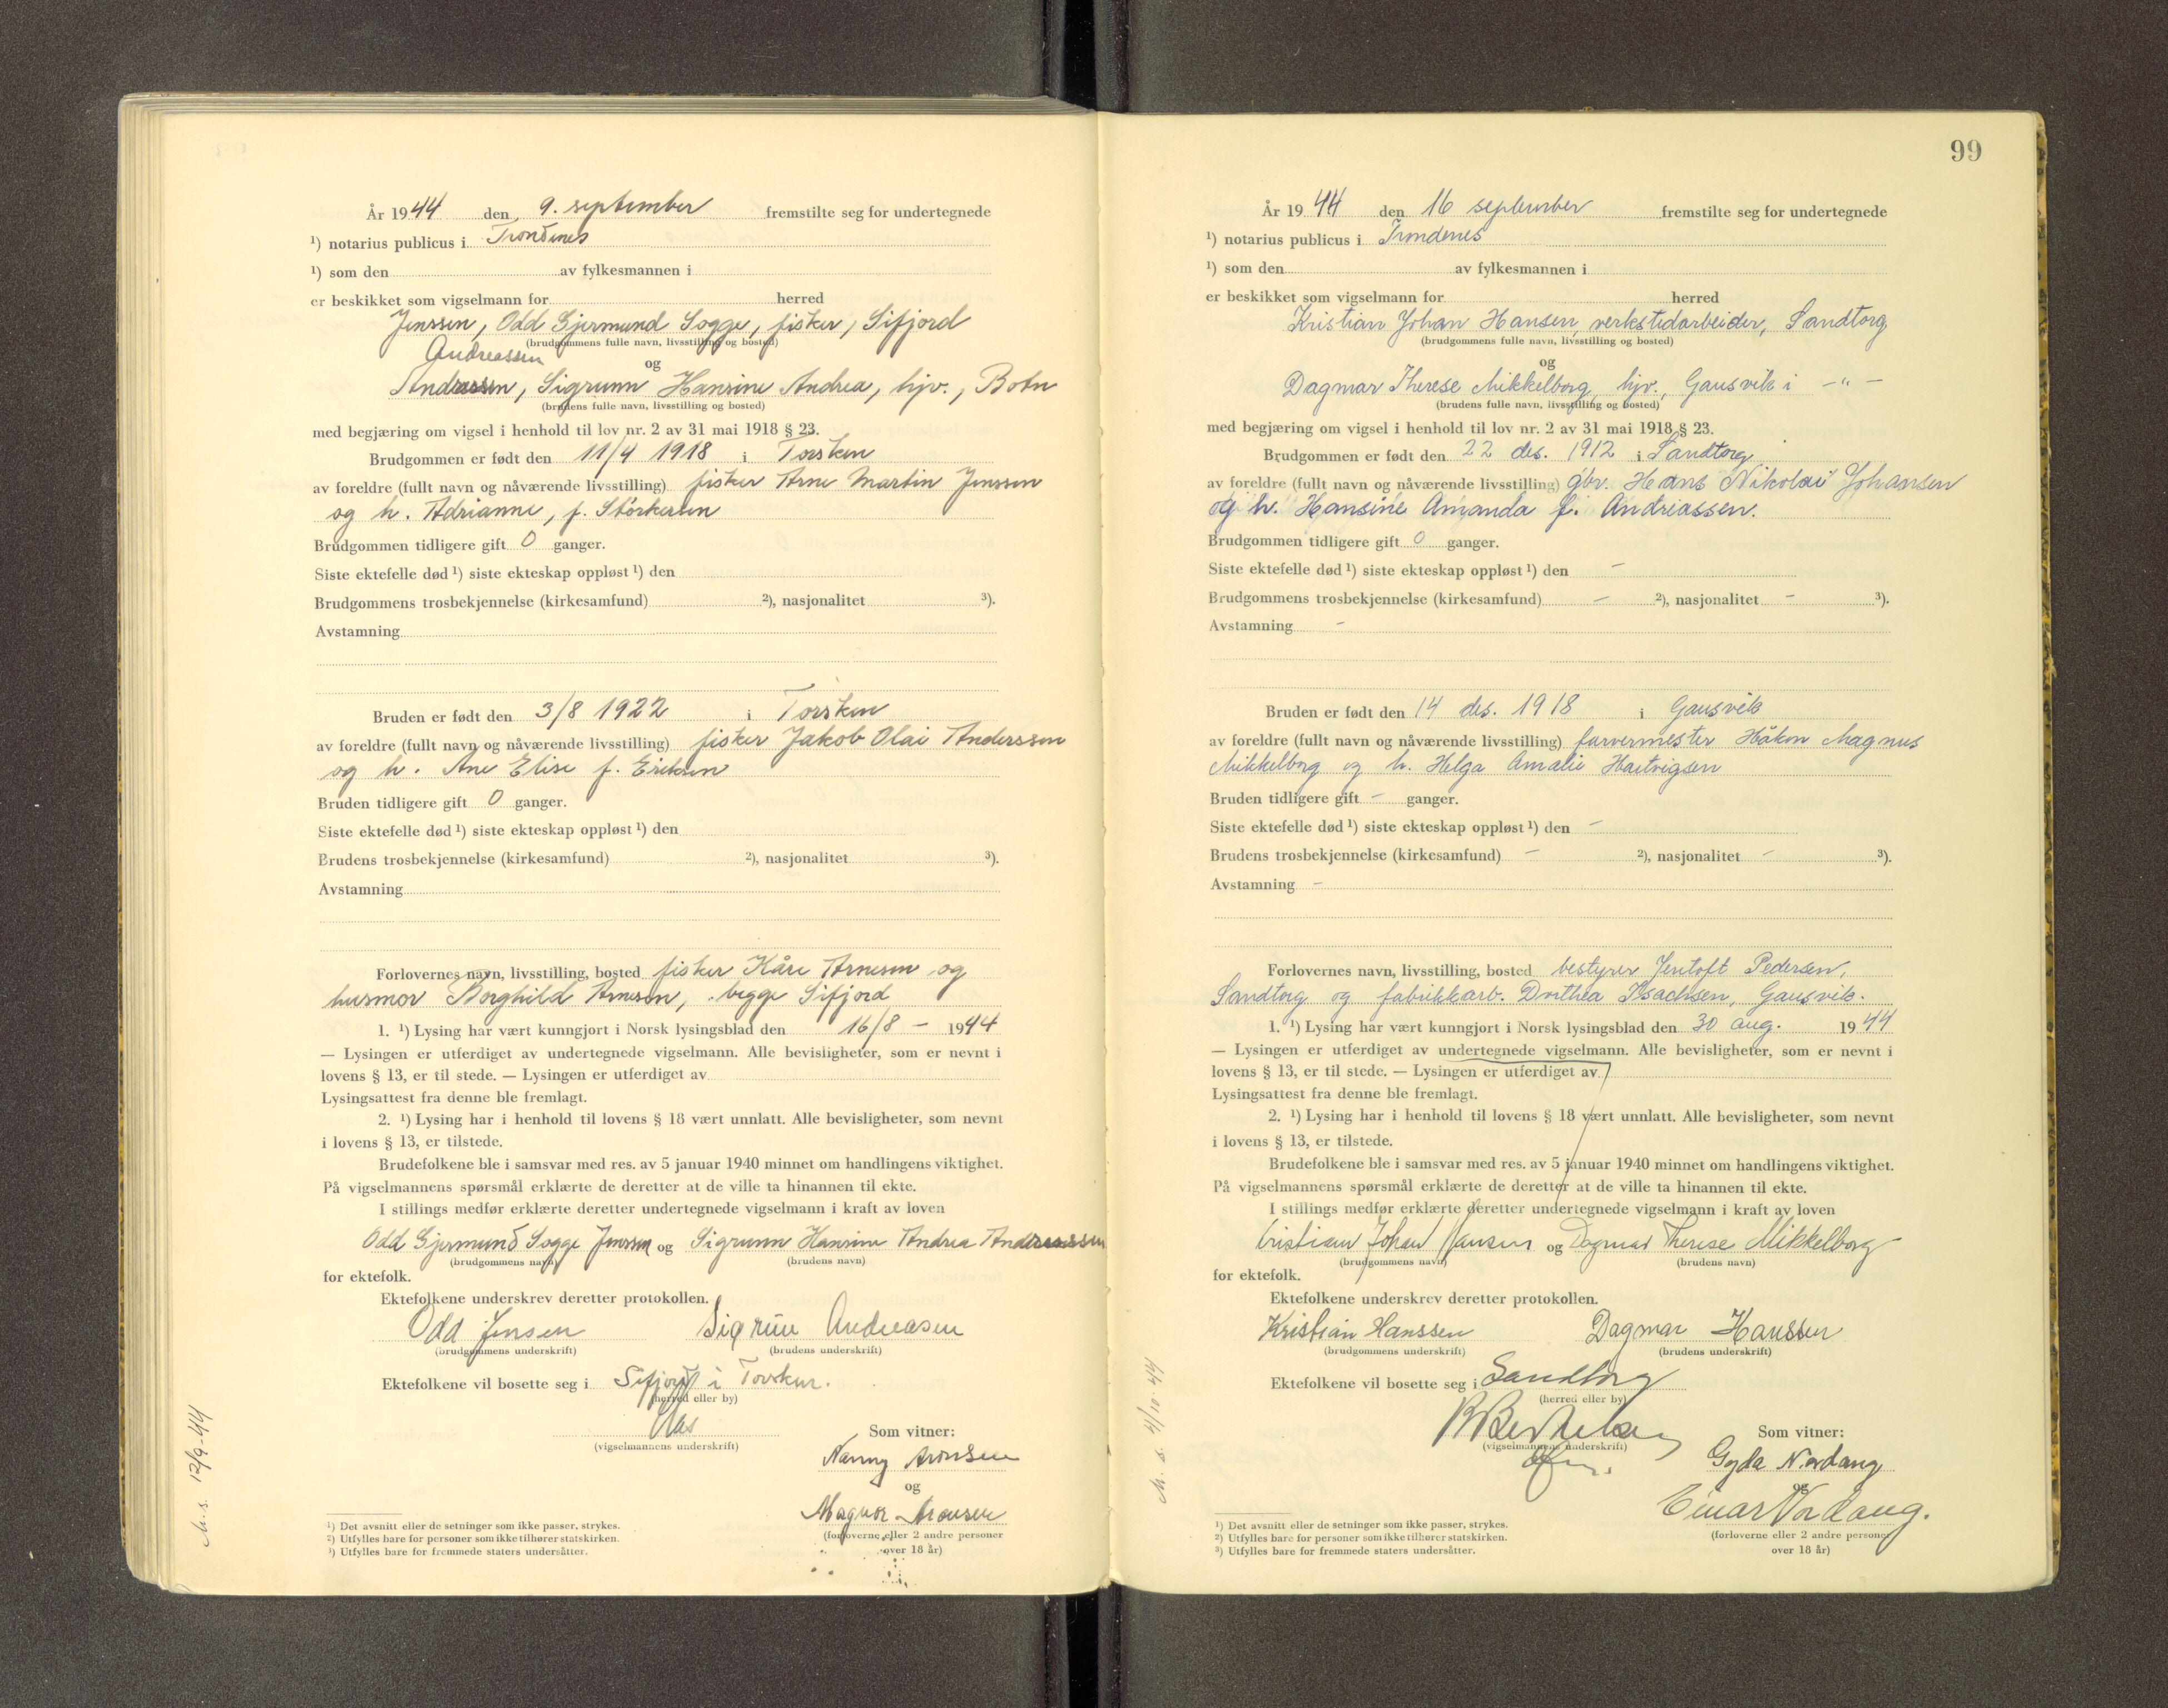 År 1944 den 9. september fremstilte seg for undertegnede
¹) notarius publicus i Trondenes
¹) som den av fylkesmannen i
er beskikket som vigselmann for herred
Jenssen, Odd Gjermund Sogge, fisker, Sifjord
(brudgommens fulle navn, livsstilling og bosted)
Andreassen
og
Andreassen, Sigrunn Hansine Andrea, hjv., Botn
(brudens fulle navn, livsstilling og bosted)
med begjæring om vigsel i henhold til lov nr. 2 av 31 mai 1918 § 23.
Brudgommen er født den 11/4 1918 i Torsken
av foreldre (fullt navn og nåværende livsstilling) fisker Arne Martin Jenssen
og h. Adrianne, f. Størkersen
Brudgommen tidligere gift 0 ganger.
Siste ektefelle død ¹) siste ekteskap oppløst ¹) den
Brudgommens trosbekjennelse (kirkesamfund) ²), nasjonalitet ³).
Avstamning
Bruden er født den 3/8 1922 i Torsken
av foreldre (fullt navn og nåværende livsstilling) fisker Jakob Olai Anderssen
og h. Ane Elise f. Eriksen
Bruden tidligere gift 0 ganger.
Siste ektefelle død ¹) siste ekteskap oppløst ¹) den
Brudens trosbekjennelse (kirkesamfund) ²), nasjonalitet ³).
Avstamning
Forlovernes navn, livsstilling, bosted fisker Kåre Arnesen og
husmor Borghild Arnesen, begge Sifjord
1. ¹) Lysing har vært kunngjort i Norsk lysingsblad den 16/8 – 1944
— Lysingen er utferdiget av undertegnede vigselmann. Alle bevisligheter, som er nevnt i
lovens § 13, er til stede. — Lysingen er utferdiget av
Lysingsattest fra denne ble fremlagt.
2. ¹) Lysing har i henhold til lovens § 18 vært unnlatt. Alle bevisligheter, som nevnt
i lovens § 13, er tilstede.
Brudefolkene ble i samsvar med res. av 5 januar 1940 minnet om handlingens viktighet.
På vigselmannens spørsmål erklærte de deretter at de ville ta hinannen til ekte.
I stillings medfør erklærte deretter undertegnede vigselmann i kraft av loven
Odd Gjermund Sogge Jenssen og Sigrunn Hansine Andrea Andreassen
(brudgommens navn) (brudens navn)
for ektefolk.
Ektefolkene underskrev deretter protokollen.
Odd Jensen Sigrun Andreasen
(brudgommens underskrift) (brudens underskrift)
Ektefolkene vil bosette seg i Sifjord i Torsken.
(herred eller by)
(vigselmannens underskrift)
Som vitner:
Nanny Aronsen
og
Magnor Aronsen
(forloverne eller 2 andre personer
over 18 år)
M. s. 12/9-44
¹) Det avsnitt eller de setninger som ikke passer, strykes.
²) Utfylles bare for personer som ikke tilhører statskirken.
³) Utfylles bare for fremmede staters undersåtter.
99
År 1944 den 16 september fremstilte seg for undertegnede
¹) notarius publicus i Trondenes
¹) som den av fylkesmannen i
er beskikket som vigselmann for herred
Kristian Johan Hansen, verkstedarbeider, Sandtorg
(brudgommens fulle navn, livsstilling og bosted)
og
Dagmar Therese Mikkelborg, hjv., Gausvik i – " –
(brudens fulle navn, livsstilling og bosted)
med begjæring om vigsel i henhold til lov nr. 2 av 31 mai 1918 § 23.
Brudgommen er født den 22 des. 1912 i Sandtorg
av foreldre (fullt navn og nåværende livsstilling) gbr. Hans Nikolai Johansen
og h. Hansine Amanda f. Andreassen.
Brudgommen tidligere gift 0 ganger.
Siste ektefelle død ¹) siste ekteskap oppløst ¹) den –
Brudgommens trosbekjennelse (kirkesamfund) – ²), nasjonalitet – ³).
Avstamning –
Bruden er født den 14 des. 1918 i Gausvik
av foreldre (fullt navn og nåværende livsstilling) farvermester Håkon Magnus
Mikkelborg og h. Helga Amalie Hartvigsen
Bruden tidligere gift – ganger.
Siste ektefelle død ¹) siste ekteskap oppløst ¹) den –
Brudens trosbekjennelse (kirkesamfund) – ²), nasjonalitet – ³).
Avstamning –
Forlovernes navn, livsstilling, bosted bestyrer Jentoft Pedersen,
Sandtorg og fabrikkarb. Dorthea Isachsen, Gausvik.
1. ¹) Lysing har vært kunngjort i Norsk lysingsblad den 30 aug. 1944
— Lysingen er utferdiget av undertegnede vigselmann. Alle bevisligheter, som er nevnt i
lovens § 13, er til stede. — Lysingen er utferdiget av
Lysingsattest fra denne ble fremlagt.
2. ¹) Lysing har i henhold til lovens § 18 vært unnlatt. Alle bevisligheter, som nevnt
i lovens § 13, er tilstede.
Brudefolkene ble i samsvar med res. av 5 januar 1940 minnet om handlingens viktighet.
På vigselmannens spørsmål erklærte de deretter at de ville ta hinannen til ekte.
I stillings medfør erklærte deretter undertegnede vigselmann i kraft av loven
Kristian Johan Hansen og Dagmar Therese Mikkelborg
(brudgommens navn) (brudens navn)
for ektefolk.
Ektefolkene underskrev deretter protokollen.
Kristian Hanssen Dagmar Hanssen
(brudgommens underskrift) (brudens underskrift)
Ektefolkene vil bosette seg i Sandtorg
(herred eller by)
(vigselmannens underskrift)
Som vitner:
Gyda Nordang
og
Einar Nordang.
(forloverne eller 2 andre personer
over 18 år)
M. s. 4/10-44
¹) Det avsnitt eller de setninger som ikke passer, strykes.
²) Utfylles bare for personer som ikke tilhører statskirken.
³) Utfylles bare for fremmede staters undersåtter.